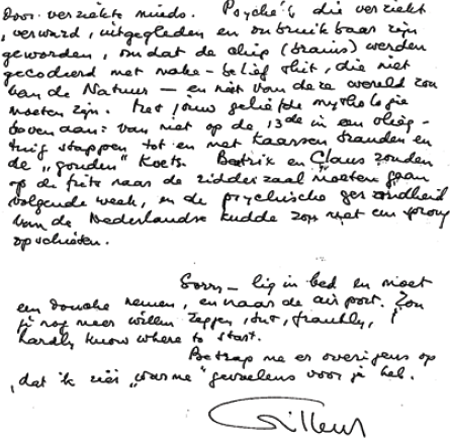 door verziekte minds. Psyche's die verziekt
, verward, uitgegleden en onbruikbaar zijn
geworden, omdat de chip (brains) werden
gecodeerd met make-belief shit, die niet
van de Natuur — en niet van deze wereld zou
moeten zijn. Met jouw geliefde mythologie
bovenaan: van niet op de 13de in een vlieg-
tuig stappen tot en met kaarsen branden en
de "gouden" Koets. Beatrix en Claus zouden
op de fiets naar de ridderzaal moeten gaan
volgende week, en de psychische gezondheid
van de Nederlandse kudde zou met een sprong
opschieten.
Sorry — lig in bed en moet
een douche nemen, en naar de airport. Zou
je nog meer willen zeggen, but, frankly, I
hardly know where to start.
Betrap me er overigens op
, dat ik "warme" gevoelens voor je heb.
Willem